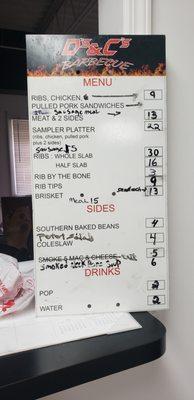 D's & C's
BARBECUE
MENU
RIBS, CHICKEN, 9
PULLED PORK SANDWICHES
MEAT & 2 SIDES 13
SAMPLER PLATTER 22
(ribs, chicken, pulled pork
plus 2 sides)
sausage $5
RIBS : WHOLE SLAB 30
HALF SLAB 16
RIB BY THE BONE 3
RIB TIPS 9
BRISKET sandwich 13
meal 15
SIDES
SOUTHERN BAKED BEANS 4
COLESLAW 4
SMOKE 5 MAC & CHEESE 5
Smoked 6
DRINKS
POP 2
WATER 2